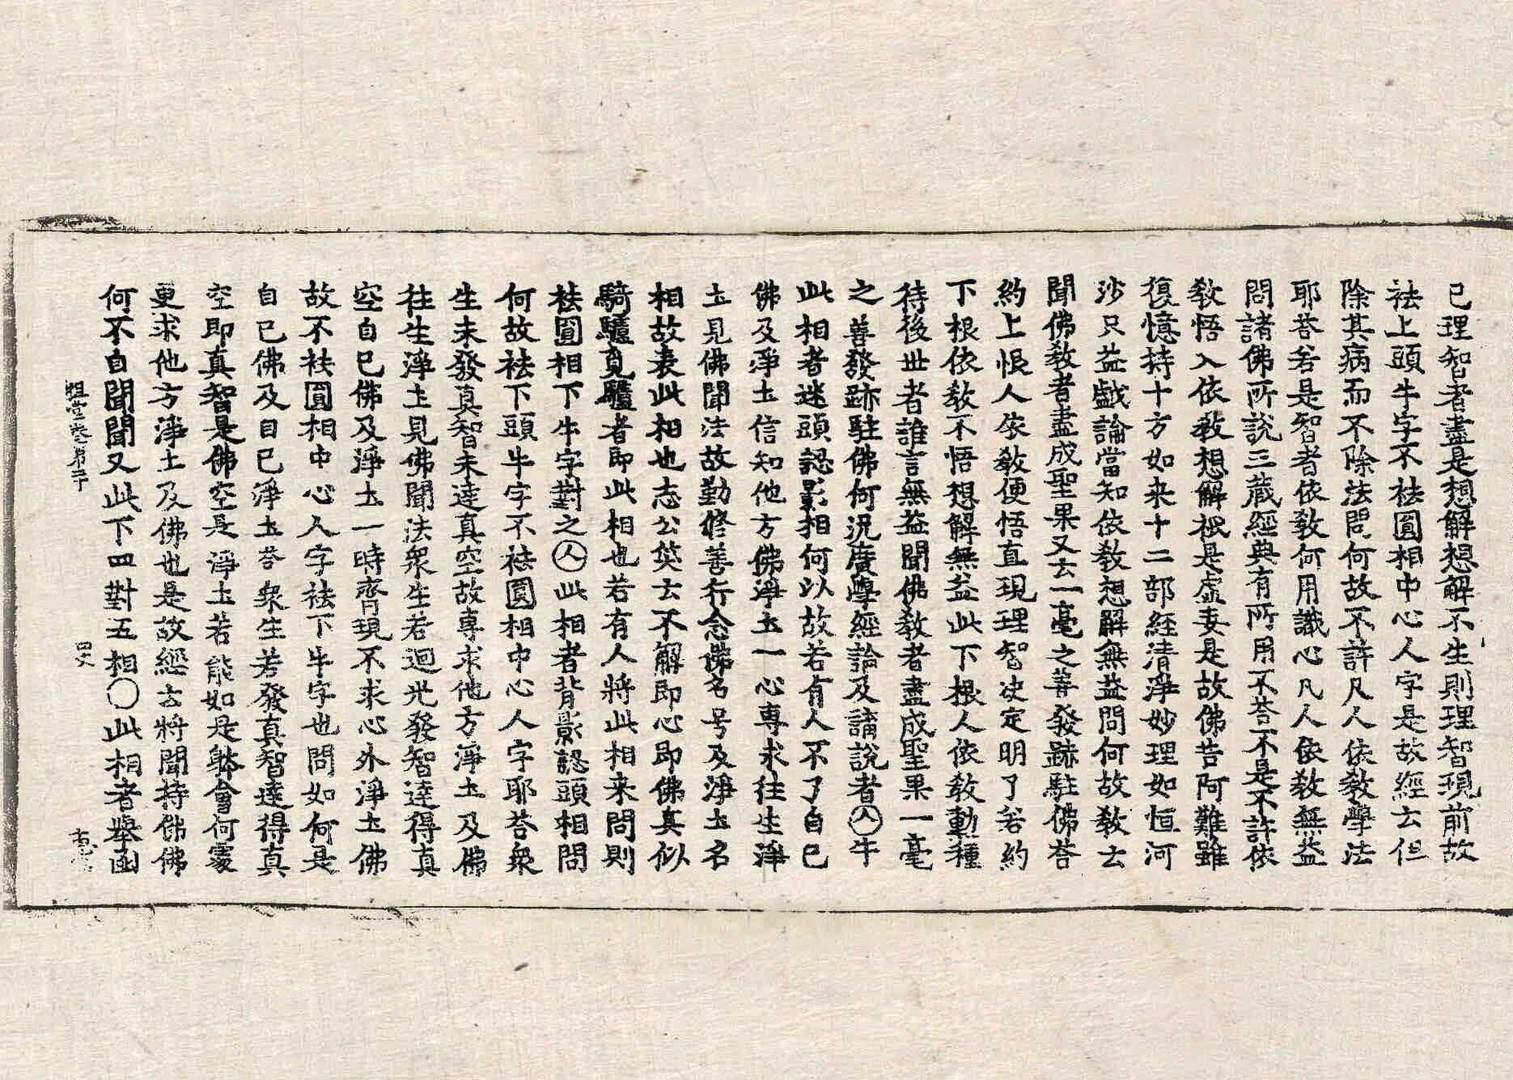 已理智者盡是想解想解不生則理智現前故
祛上頭牛字不祛圓相中心人字是故經云但
除其病而不除法問何故不許凡人依教學法
耶荅若是智者依教何用識心凡人依教無益
問諸佛所說三藏經典有所用不荅不是不許依
教悟入依教想解極是虛妄是故佛告阿難雖
復憶持十方如来十二部經清淨妙理如恒河
沙只益戲論當知依教想解無益問何故教云
聞佛教者盡成聖果又云一毫之善發跡駐佛荅
約上根人依教便悟直現理智决定明了若約
下根依教不悟想解無益此下根人依教勳種
待後世者誰言無益聞佛教者盡成聖果一毫
之善發跡駐佛何況廣學經論及講說者㊅牛
此相者迷頭認影相何以故若有人不了自己
佛及淨土信知他方佛淨土一心專求往生淨
土見佛聞法故勤修善行念佛名号及淨土名
相故表此相也志公笑云不解即心即佛真似
騎驢覓驢者即此相也若有人將此相来問則
祛圓相下牛字對之人此相者背影認頭相問
何故祛下頭牛字不祛圓相中心人字耶荅衆
生未發真智未達真空故專求他方淨土及佛
往生淨土見佛聞法衆生若迴光發智達得真
空自己佛及淨土一時齊現不求心外淨土佛
故不祛圓相中心人字祛下牛字也問如何是
自己佛及自己淨土荅衆生若發真智達得真
空即真智是佛空是淨土若能如是躰會何處
更求他方淨土及佛也是故經云將聞持佛佛
何不自聞聞又此下四對五相〇此相者擧函
祖堂卷第二十
四丈